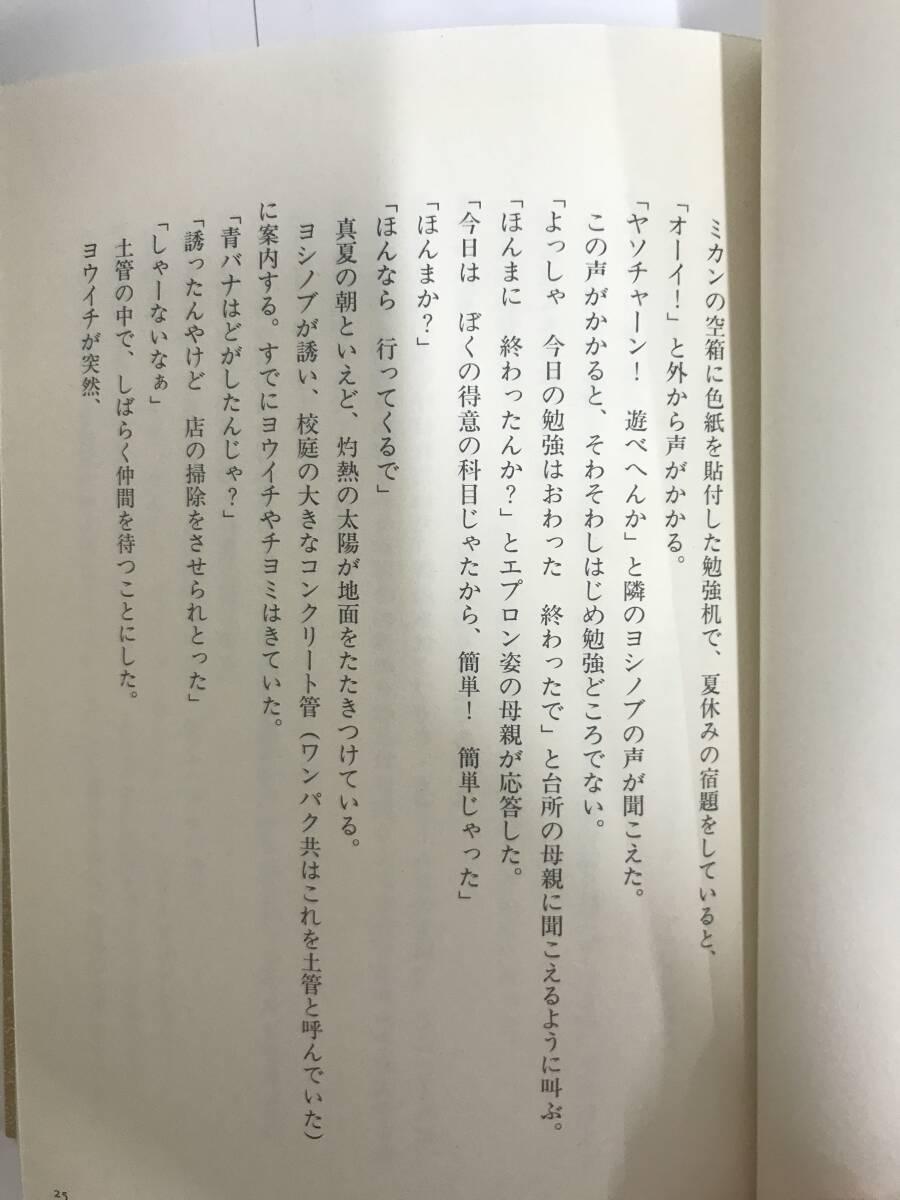 ミカンの空箱に色紙を貼付した勉強机で、夏休みの宿題をしていると、
「オーイ！」と外から声がかかる。
「ヤソチャーン！　遊べへんか」と隣のヨシノブの声が聞こえた。
この声がかかると、そわそわしはじめ勉強どころでない。
「よっしゃ　今日の勉強はおわった　終わったで」と台所の母親に聞こえるように叫ぶ。
「ほんまに　終わったんか？」とエプロン姿の母親が応答した。
「今日は　ぼくの得意の科目じゃたから、簡単！　簡単じゃった」
「ほんまか？」
「ほんなら　行ってくるで」
真夏の朝といえど、灼熱の太陽が地面をたたきつけている。
ヨシノブが誘い、校庭の大きなコンクリート管（ワンパク共はこれを土管と呼んでいた）
に案内する。すでにヨウイチやチヨミはきていた。
「青バナはどがしたんじゃ？」
「誘ったんやけど　店の掃除をさせられとった」
「しゃーないなぁ」
土管の中で、しばらく仲間を待つことにした。
ヨウイチが突然、
25